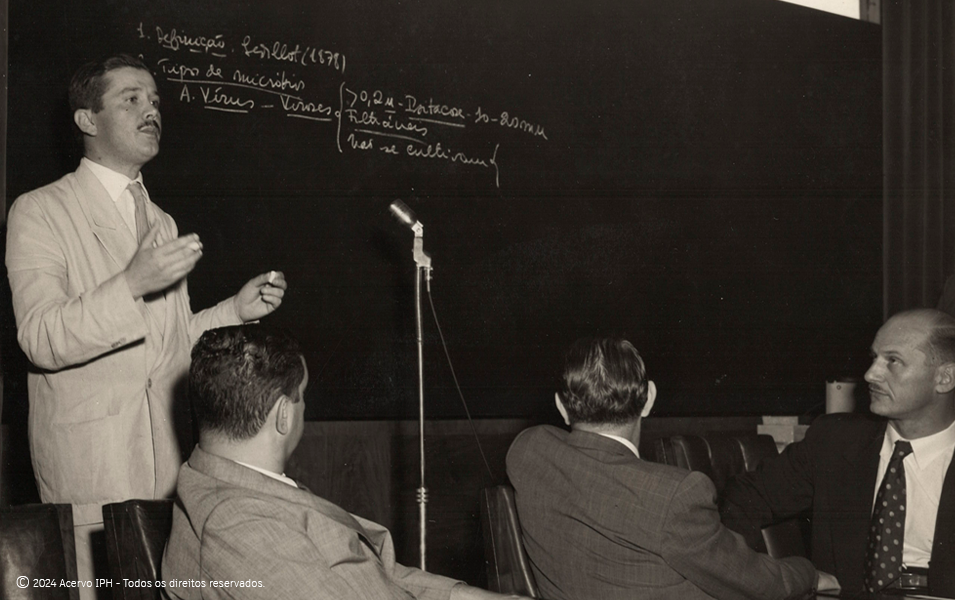 1. Definição. Sedillot (1878)
. Tipos de micróbios
A. Vírus - Viroses
>0,2μ - Psitacose - 10-20mμ
Filtráveis
não se cultivam
© 2024 Acervo IPH - Todos os direitos reservados.